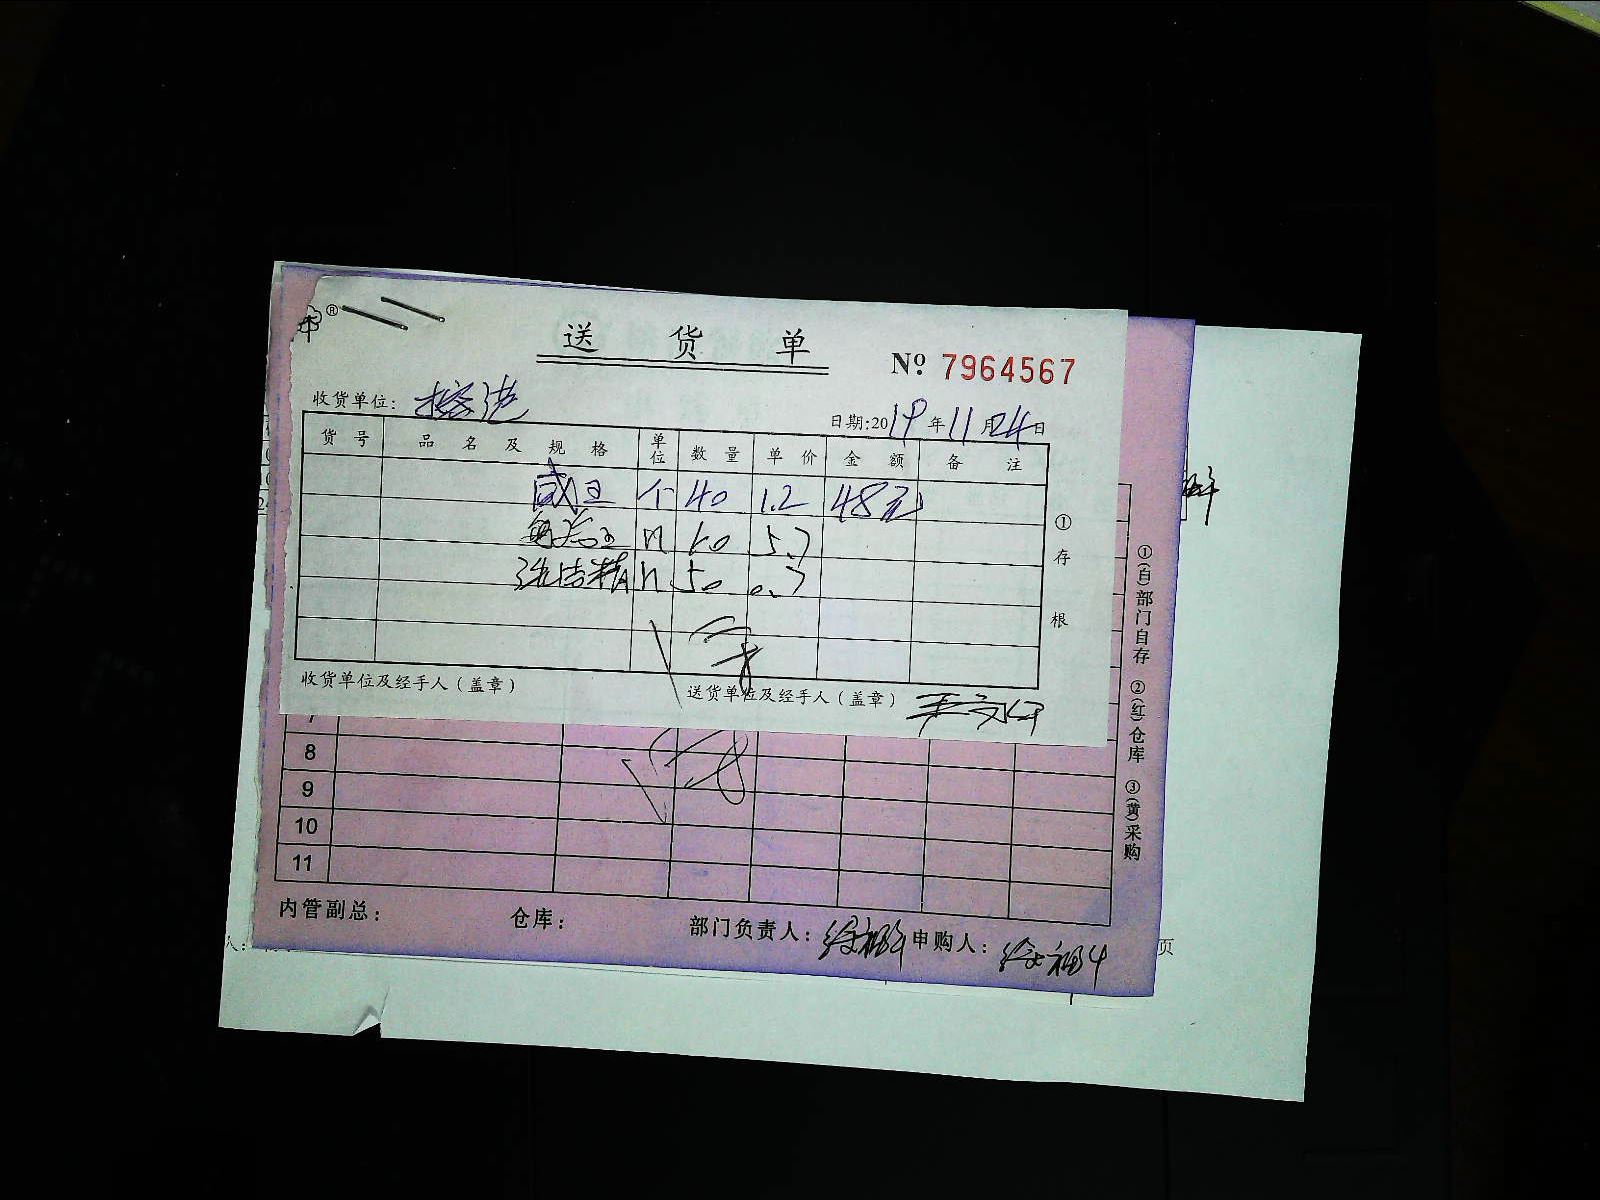 ®
送 货 单
№ 7964567
收货单位：
日期:2019年11月24日
货号 品名及规格 单位 数量 单价 金额 备注
个 40 1.2 48元
5.7
洁精 50 0.7
①存根
收货单位及经手人（盖章）
送货单位及经手人（盖章）
7
8
9
10
11
①(白)部门自存 ②(红)仓库 ③(黄)采购
内管副总： 仓库： 部门负责人： 申购人：
人：
页